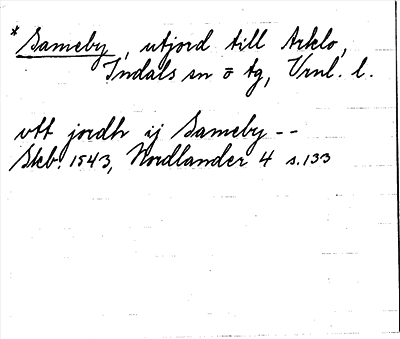 * Sameby, utjord till Arklo,
Indals sn o tg, Vrnl. l.
vtt jordh ij Sameby --
Skb. 1543, Nordlander 4 s. 133